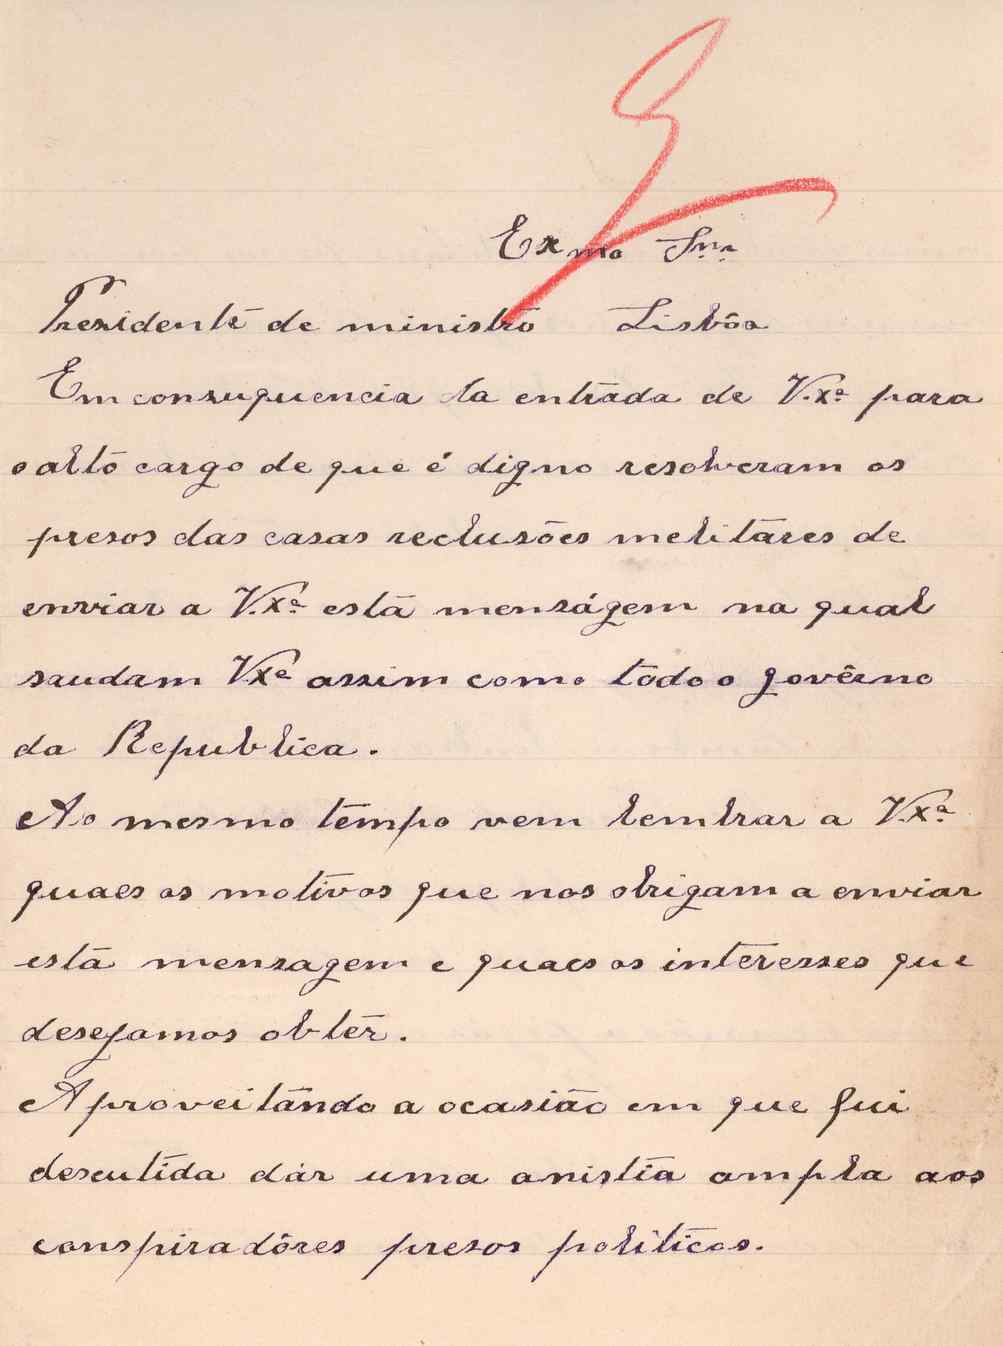 Exmo Snr.
Presidente de ministro Lisbôa
Em consuquencia da entrada de V.Xª para
o alto cargo de que é digno resolveram os
presos das casas reclusões melitares de
enviar a V.Xª está menságem na qual
saudam VXª assim como todo o govêrno
da Republica.
Ao mesmo tempo vem lembrar a V.Xª
quaes os motivos que nos obrigam a enviar
está mensagem e quaes os interesses que
desejamos obter.
Aproveitando a ocasião em que fui
descutida dár uma anistia ampla aos
conspiradôres presos politicos.